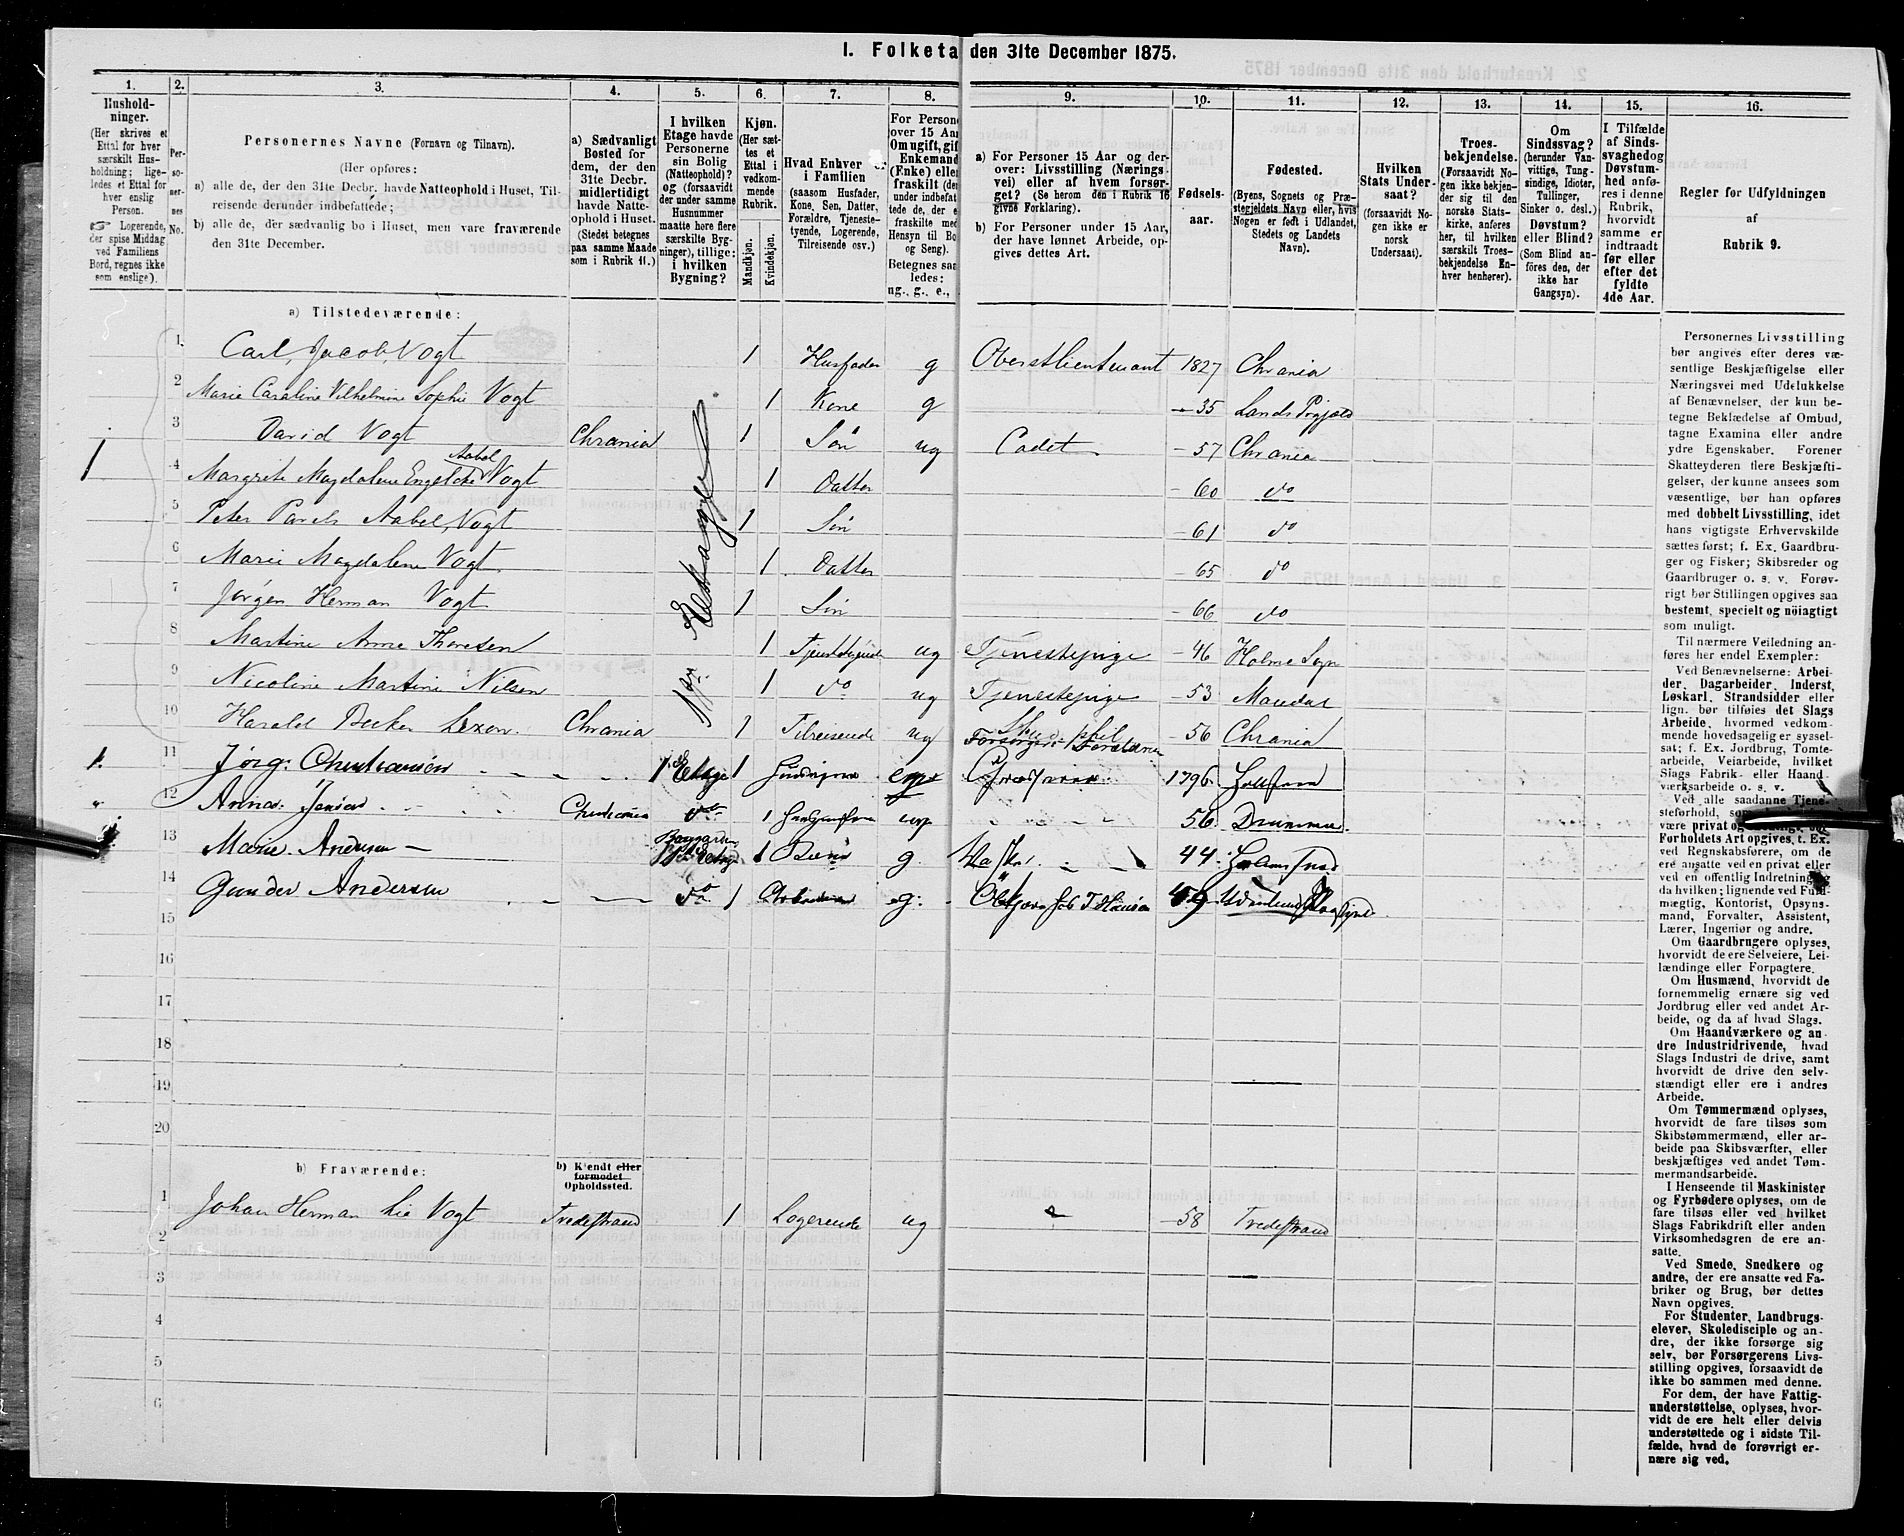 I. Folketa den 31te December 1875.
1. 2. 3. 4. 5. 6. 7. 8. 9. 10. 11. 12. 13. 14. 15. 16.
Hushold-
ninger.
(Her skrives et
Ettal for hver
særskilt Hus-
holdning; lige-
ledes et Ettal for
hver enslig
Person.
☞ Logerende,
der spise Middag
ved Familiens
Bord, regnes ikke
som enslige).
Per-
so-
ner-
nes
No.
Personernes Navne (Fornavn og Tilnavn).
(Her opføres:
a) alle de, der den 31te Decbr. havde Natteophold i Huset, Til-
reisende derunder indbefattede;
b) alle de, der sædvanlig bo i Huset, men vare fraværende
den 31te December.
a) Sædvanligt
Bosted for
dem, der den
31te Decbr.
midlertidigt
havde Natte-
ophold i Huset.
(Stedet betegnes
paa samme Maade
som i Rubrik 11.)
I hvilken
Etage havde
Personerne
sin Bolig
(Natteophold)?
og (forsaavidt
der under samme
Husnummer
maatte høre flere
særskilte Byg-
ninger), tillige:
i hvilken
Bygning?
Kjøn.
(Her sæt-
tes et
Ettal i
vedkom-
mende
Rubrik.
Mandkjøn.
Kvindekjøn.
Hvad Enhver er
i Familien
(saasom Husfader,
Kone, Søn, Datter,
Forældre, Tjeneste-
tyende, Logerende,
Tilreisende osv.)
For Person
over 15 Aar
Om ugift, gif
Enkemand
(Enke) elle
fraskilt (de
under indbefat
tede de, der e
fraskilte me
Hensyn til Bo
og Seng).
Betegnes saa
ledes:
ug., g., e.,
a) For Personer 15 Aar og der-
over: Livsstilling (Nærings-
vei) eller af hvem forsør-
get? (Se herom den i Rubrik 16
givne Forklaring).
b) For Personer under 15 Aar,
der have lønnet Arbeide, op-
gives dettes Art.
Fødsels-
aar.
Fødested.
(Byens, Sognets og Præ-
stegjeldets Navn eller, hvis
Nogen er født i Udlandet,
Stedets og Landets
Navn).
Hvilken
Stats Under-
saat?
(forsaavidt No-
gen ikke er
norsk
Undersaat).
Troes-
bekjendelse.
(Forsaavidt No-
gen ikke bekjen-
der sig til den
norske Stats-
kirke, anføres
her, til hvilken
særskilt Troes-
bekjendelse En-
hver henhører).
Om
Sindssvag?
(herunder Van-
vittige, Tung-
sindige, Idioter,
Tullinger,
Sinker o. desl.)
Døvstum?
eller Blind?
(Som Blind an-
føres den, der
ikke har
Gangsyn).
I Tilfælde
af Sinds-
svaghed og
Døvstum-
hed anfø-
res i denne
Rubrik,
hvorvidt
samme er
indtraadt
før eller
efter det
fyldte
4de Aar.
Regler før Udfyldningen
af
Rubrik 9.
a) Tilstedeværende:
1. Carl Jacob Vogt 1 Husfader g Oberstlieutenant 1827 Chrania
2 Marie Caroline Vilhelmine Sophie Vogt 1 Kone g - 35 Lands Prgjæld
3 David Vogt Chrania 1 Søn ug Cadet - 57 Chrania
1 4 Margrete Magdalene Engelche Aabel Vogt 1 Datter - 60 do
5 Peter Pavels Aabel Vogt 1 Søn - 61 do
6 Marie Magdalene Vogt 1 Datter - 65 do
7 Jørgen Herman Vogt 1 Søn - 66 do
8 Martine Anne Thoresen 1 ug Tjenestepige - 46 Holme Sogn
9 Nicoline Martine Nilsen 1 do ug Tjenestepige - 53 Mandal
10 Harald Becker Chrania 1 Tilreisende ug Stud. phil. Forsørges Forældrene - 56 Chrania
1ste Etage
1. 11 Jørg. Christiansen 1 Etage 1 1796
12 Anna Jensen Christiania do 1 56
13 Marie Andersen Etage 1 g 44
14 Gunder Andersen do 1 g.
15
16
17
18
19
20
b) Fraværende: b) Kjendt eller
formodet
Opholdssted.
1 Johan Herman Lie Vogt Tvedestrand 1 Logerende ug - 58 Tvedestrand
2
3
4
5
6
Personernes Livsstilling
bør angives efter deres væ-
sentlige Beskjæftigelse eller
Næringsvei med Udelukkelse
af Benævnelser, der kun be-
tegne Beklædelse af Ombud,
tagne Examina eller andre
ydre Egenskaber. Forener
Skatteyderen flere Beskjæfti-
gelser, der kunne ansees som
væsentlige, bør han opføres
med dobbelt Livsstilling, idet
hans vigtigste Erhvervskilde
sættes først; f. Ex. Gaardbru-
ger og Fisker; Skibsreder og
Gaardbruger o. s. v. Forøv-
rigt bør Stillingen opgives saa
bestemt, specielt og nøiagtigt
som muligt.
Til nærmere Veiledning an-
føres her endel Exempler:
Ved Benævnelserne: Arbei-
der, Dagarbeider, Inderst,
Løskarl, Strandsidder eller
lign. bør tilføies det Slags
Arbeide, hvormed vedkom-
mende hovedsagelig er syssel-
sat; f. Ex. Jordbrug, Tomte-
arbeide, Veiarbeide, hvilket
Slags Fabrik- eller Haand-
værksarbeide o. s. v.
Ved alle saadanne Tjene-
steforhold,
være privat
Forholdets Art opgives, f. Ex.
ved Regnskabsførere, om de
ere ansatte ved en privat eller
ved en offentlig Indretning og
da hvilken; lignende ved Fuld-
mægtig, Kontorist, Opsyns-
mand, Forvalter, Assistent,
Lærer, Ingeniør og andre.
Om Gaardbrugere oplyses,
hvorvidt de ere Selveiere, Lei-
lændinge eller Forpagtere.
Om Husmænd, hvorvidt de
fornemmelig ernære sig ved
Jordbrug eller ved andet Ar-
beide, og da af hvad Slags.
Om Haandværkere og an-
dre Industridrivende, hvad
Slags Industri de drive, samt
hvorvidt de drive den selv-
stændigt eller ere i andres
Arbeide.
Om Tømmermænd oplyses,
hvorvidt de fare tilsøs som
Skibstømmermænd, eller ar-
beide paa Skibsværfter, eller
beskjæftiges ved andet Tøm-
mermandsarbeide.
I Henseende til Maskinister
og Fyrbødere oplyses, om de
fare tilsøs eller ved hvilket
Slags Fabrikdrift eller anden
Virksomhedsgren de ere an-
satte.
Ved Smede, Snedkere og
andre, der ere ansatte ved Fa-
briker og Brug, bør dettes
Navn opgives.
For Studenter, Landbrugs-
elever, Skoledisciple og an-
dre, der ikke forsørge sig
selv, bør Forsørgerens Livs-
stilling opgives, forsaavidt de
ikke bo sammen med denne.
For dem, der have Fattig-
understøttelse, oplyses, hvor-
vidt de ere helt eller delvis
understøttede og i sidste Til-
fælde, hvad de forøvrigt er-
nære sig ved.